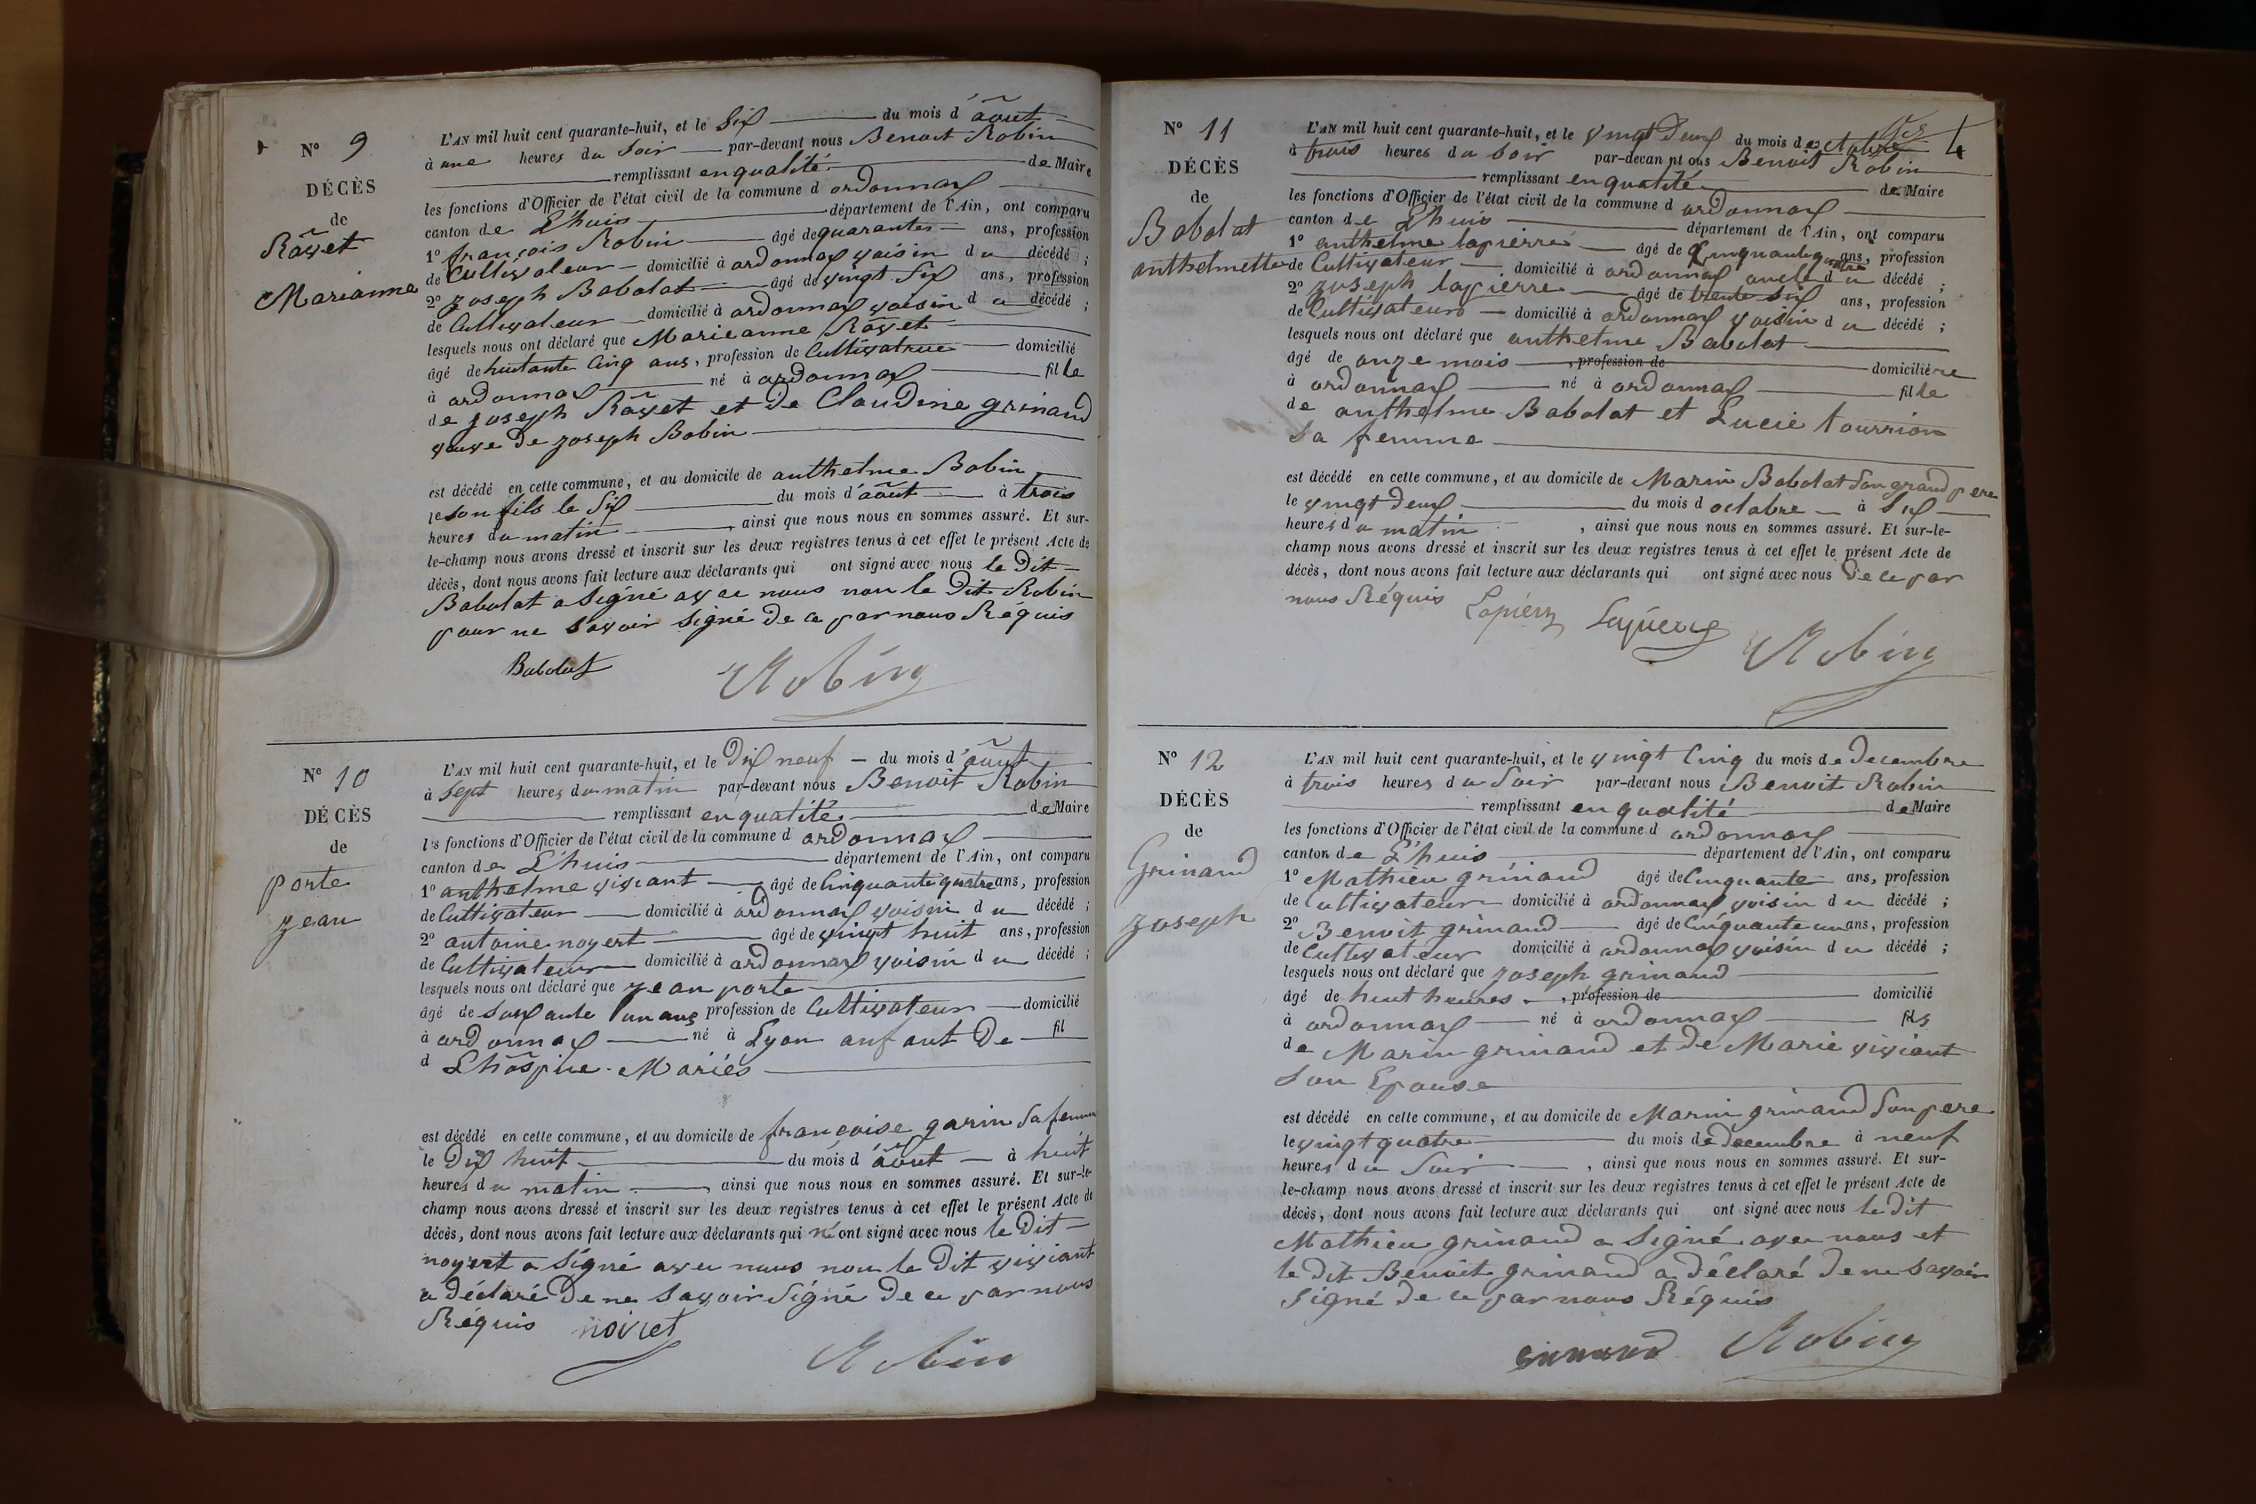 N° 9
DÉCÈS
de
Röyet
Marianne
L'AN mil huit cent quarante-huit, et le Six du mois d'août
à une heures du Soir par-devant nous Benoit Robin
remplissant en qualité de Maire
les fonctions d'Officier de l'état civil de la commune d ordonnax
canton de L'huis département de l'Ain, ont comparu
1° françois Robin âgé de quarante ans, profession
de Cultivateur domicilié à ordonnax voisin du décédé ;
2° Joseph Babolat âgé de vingt Six ans, profession
de Cultivateur domicilié à ordonnax voisin du décédé ;
lesquels nous ont déclaré que Marieanne Röyet
âgé de huitante Cinq ans, profession de Cultivatrice domicilié
à ordonnax né à ordonnax fille
de Joseph Röyet et de Claudine grinand
veuve de Joseph Bobin
est décédé en cette commune, et au domicile de anthelme Bobin
le son fils le Six du mois d'août à trois
heures du matin, ainsi que nous nous en sommes assuré. Et sur-
le-champ nous avons dressé et inscrit sur les deux registres tenus à cet effet le présent Acte de
décès, dont nous avons fait lecture aux déclarants qui ont signé avec nous le Dit
Babolat a Signé avec nous non le Dit Robin
pour ne Savoir Signé de ce par nous Réquis
Babolat Robin
N° 10
DÉCÈS
de
porte
jean
L'AN mil huit cent quarante-huit, et le Dix neuf du mois d'août
à Sept heures du matin par-devant nous Benoit Robin
remplissant en qualité de Maire
les fonctions d'Officier de l'état civil de la commune d ordonnax
canton de L'huis département de l'Ain, ont comparu
1° anthelme viviant âgé de Cinquante quatre ans, profession
de Cultivateur domicilié à ordonnax voisin du décédé ;
2° antoine noyert âgé de vingt huit ans, profession
de Cultivateur domicilié à ordonnax voisin du décédé ;
lesquels nous ont déclaré que jean porte
âgé de Soixante un ans profession de Cultivateur domicilié
à ordonnax né à Lyon anfant De fil
d L'hôspice Mariés
est décédé en cette commune, et au domicile de françoise garin Sa femme
le Dix huit du mois d'août à huit
heures du matin, ainsi que nous nous en sommes assuré. Et sur-le-
champ nous avons dressé et inscrit sur les deux registres tenus à cet effet le présent Acte de
décès, dont nous avons fait lecture aux déclarants qui n'ont signé avec nous le Dit
noyert a Signé avec nous non le Dit viviant
a déclaré De ne Savoir Signé De ce par nous
Réquis noiret Robin
N° 11
DÉCÈS
de
Babolat
anthelmette
4
L'AN mil huit cent quarante-huit, et le vingt Deux du mois de octobre
à trois heures du Soir par-devant nous Benoit Robin
remplissant en qualité de Maire
les fonctions d'Officier de l'état civil de la commune d ordonnax
canton de L'huis département de l'Ain, ont comparu
1° anthelme lapierre âgé de Cinquante quatre ans, profession
de Cultivateur domicilié à ordonnax oncle du décédé ;
2° Joseph lapierre âgé de trente Six ans, profession
de Cultivateur domicilié à ordonnax voisin du décédé ;
lesquels nous ont déclaré que anthelme Babolat
âgé de onze mois, profession de domicilié re
à ordonnax né à ordonnax fille
de anthelme Babolat et Lucie tourrion
Sa femme
est décédé en cette commune, et au domicile de Marin Babolat Son grand pere
le vingt Deux du mois d octobre à Six
heures du matin, ainsi que nous nous en sommes assuré. Et sur-le-
champ nous avons dressé et inscrit sur les deux registres tenus à cet effet le présent Acte de
décès, dont nous avons fait lecture aux déclarants qui ont signé avec nous De ce par
nous Réquis Robin
N° 12
DÉCÈS
de
Grinand
Joseph
L'AN mil huit cent quarante-huit, et le vingt Cinq du mois de Decembre
à trois heures du Soir par-devant nous Benoit Robin
remplissant en qualité de Maire
les fonctions d'Officier de l'état civil de la commune d ordonnax
canton de L'huis département de l'Ain, ont comparu
1° Mathieu grinand âgé de Cinquante ans, profession
de Cultivateur domicilié à ordonnax voisin du décédé ;
2° Benoit grinand âgé de Cinquante un ans, profession
de Cultivateur domicilié à ordonnax voisin du décédé ;
lesquels nous ont déclaré que Joseph grinand
âgé de huit heures, profession de domicilié
à ordonnax né à ordonnax fils
de Marin grinand et de Marie viviant
Son Epouse
est décédé en cette commune, et au domicile de Marin grinand Son pere
le vingt quatre du mois de Decembre à neuf
heures du Soir, ainsi que nous nous en sommes assuré. Et sur-
le-champ nous avons dressé et inscrit sur les deux registres tenus à cet effet le présent Acte de
décès, dont nous avons fait lecture aux déclarants qui ont signé avec nous le dit
Mathieu grinand a Signé avec nous et
le dit Benoit grinand a déclaré De ne Savoir
Signé De ce par nous Réquis
Robin